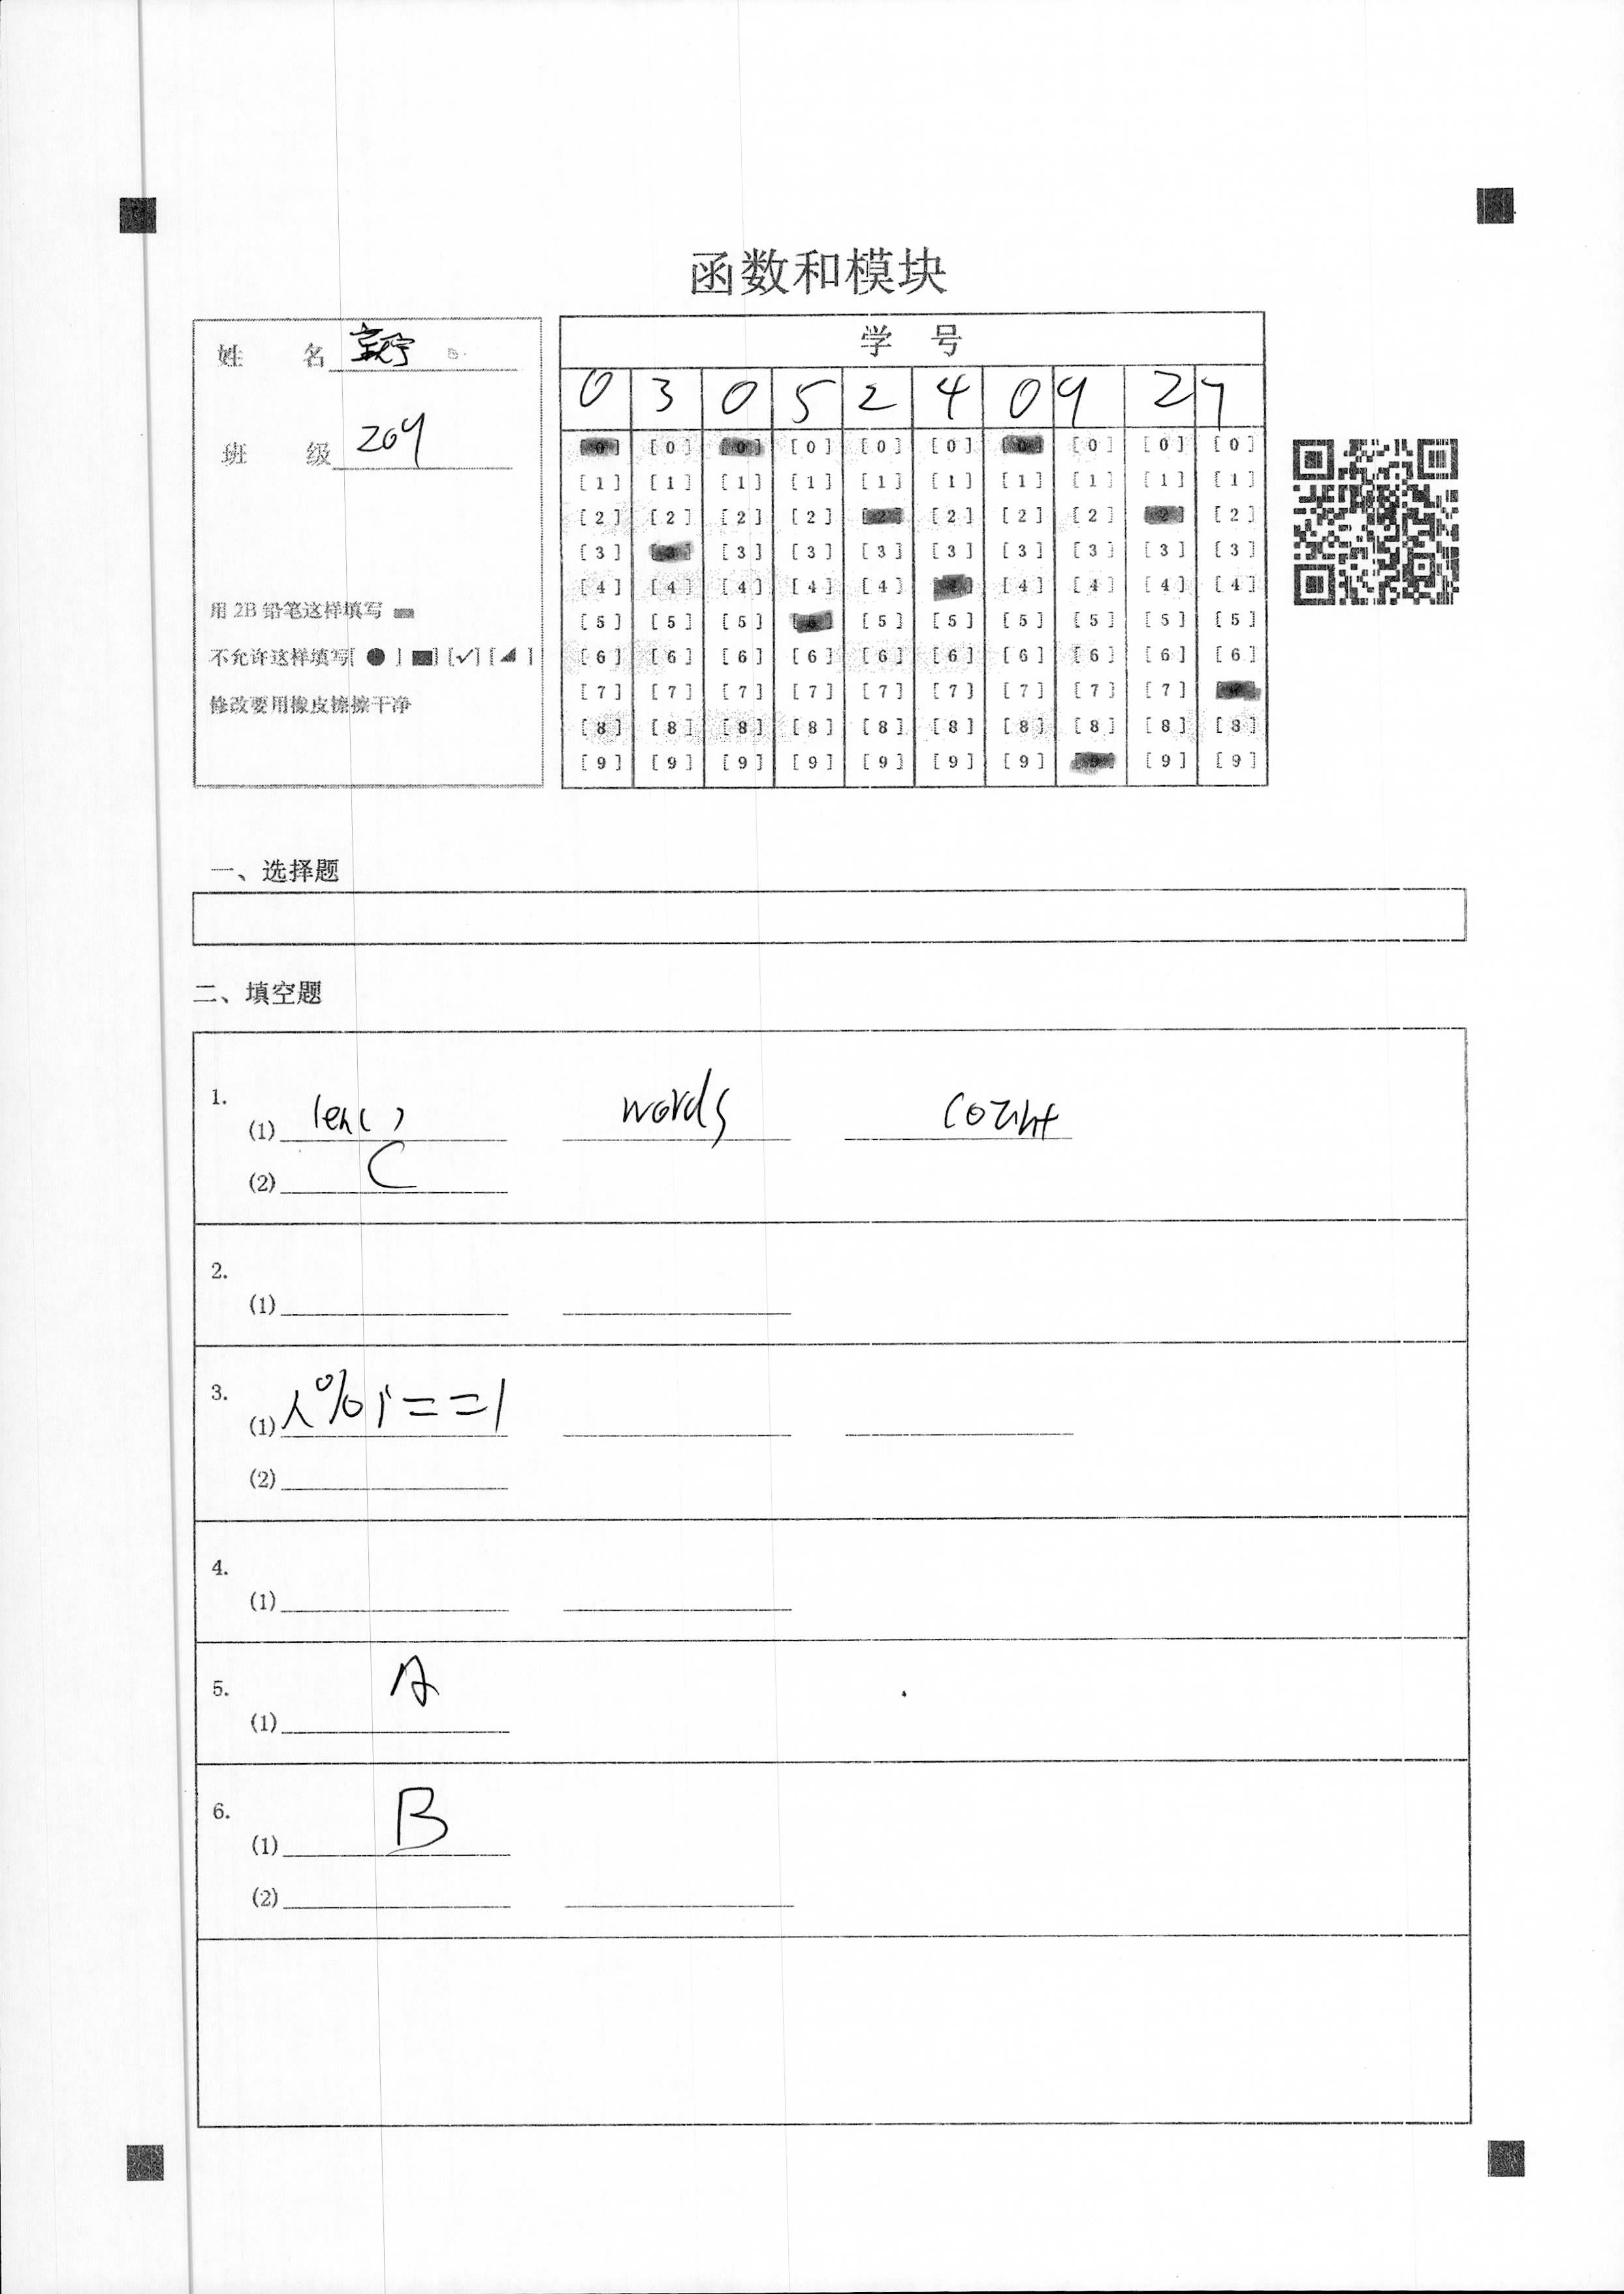 函数和模块
姓 名
班 级 209
用 2B 铅笔这样填写
不允许这样填写[ ● ] [■] [✓] [◢ ]
修改要用橡皮擦擦干净
学 号
0 3 0 5 2 4 0 9 2 7
[0] [0] [0] [0] [0] [0] [0] [0] [0] [0]
[1] [1] [1] [1] [1] [1] [1] [1] [1] [1]
[2] [2] [2] [2] [2] [2] [2] [2] [2] [2]
[3] [3] [3] [3] [3] [3] [3] [3] [3] [3]
[4] [4] [4] [4] [4] [4] [4] [4] [4] [4]
[5] [5] [5] [5] [5] [5] [5] [5] [5] [5]
[6] [6] [6] [6] [6] [6] [6] [6] [6] [6]
[7] [7] [7] [7] [7] [7] [7] [7] [7] [7]
[8] [8] [8] [8] [8] [8] [8] [8] [8] [8]
[9] [9] [9] [9] [9] [9] [9] [9] [9] [9]
一、选择题
二、填空题
1.
(1) len( ) words count
(2) C
2.
(1)
3.
(1) %i==1
(2)
4.
(1)
5.
(1) A
6.
(1) B
(2)